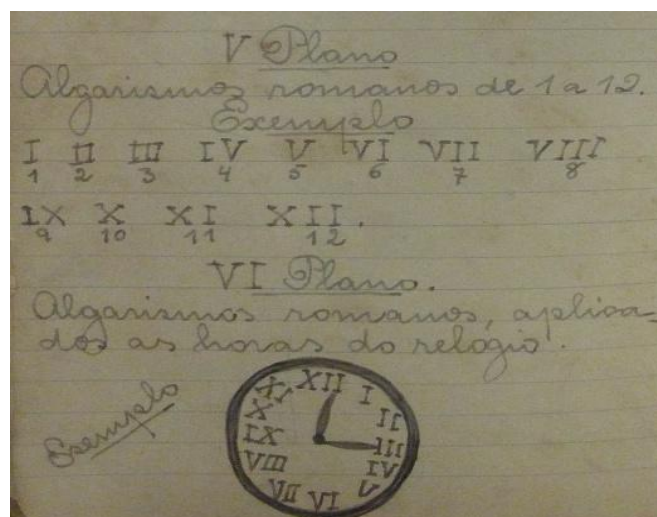 V Plano
Algarismos romanos de 1 a 12.
Exemplo
I II III IV V VI VII VIII
1 2 3 4 5 6 7 8
IX X XI XII.
9 10 11 12
VI Plano.
Algarismos romanos, aplica-
dos as horas do relógio.
Exemplo
XII I II III IV V VI VII VIII IX X XI